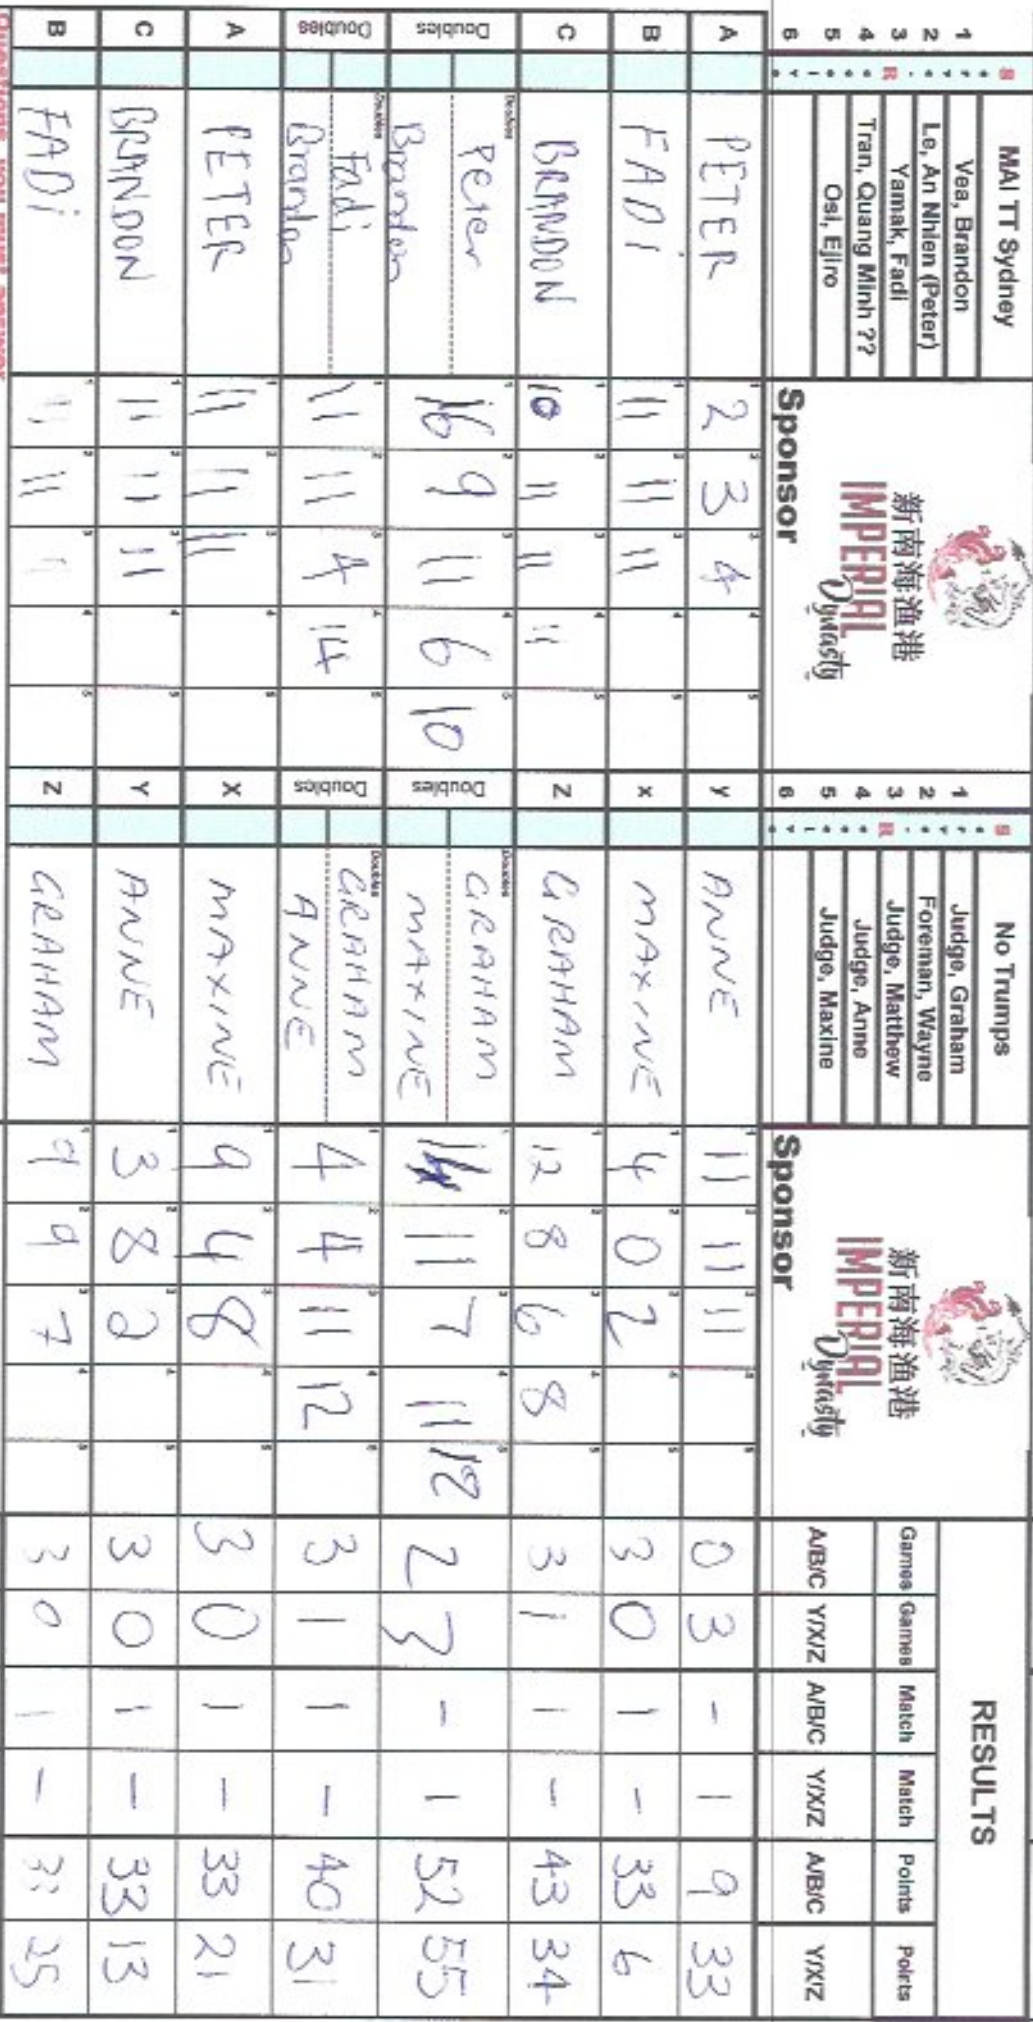 MAI TT Sydney
1 Vea, Brandon
2 Le, An Nhien (Peter)
3 Yamak, Fadi
4 Tran, Quang Minh ??
5 Osi, Ejiro
6
新南海渔港
IMPERIAL
Dynasty
Sponsor
No Trumps
1 Judge, Graham
2 Foreman, Wayne
3 Judge, Matthew
4 Judge, Anne
5 Judge, Maxine
6
新南海渔港
IMPERIAL
Dynasty
Sponsor
RESULTS
Games Games Match Match Points Points
A/B/C Y/X/Z A/B/C Y/X/Z A/B/C Y/X/Z
A PETER 2 3 4 Y ANNE 11 11 11 0 3 - 1 9 33
B FADI 11 11 11 X MAXINE 4 0 2 3 0 1 - 33 6
C BRANDON 10 11 11 11 Z GRAHAM 12 8 6 8 3 1 1 - 43 34
Doubles Peter Brandon 16 9 11 6 10 Doubles GRAHAM MAXINE 11 7 11 12 2 3 - 1 52 55
Doubles Fadi Brandon 11 11 4 14 Doubles GRAHAM ANNE 4 4 11 12 3 1 1 - 40 31
A PETER 11 11 11 X MAXINE 9 4 8 3 0 1 - 33 21
C BRANDON 11 11 11 Y ANNE 3 8 2 3 0 1 - 33 13
B FADI 11 11 11 Z GRAHAM 9 9 7 3 0 1 - 33 25